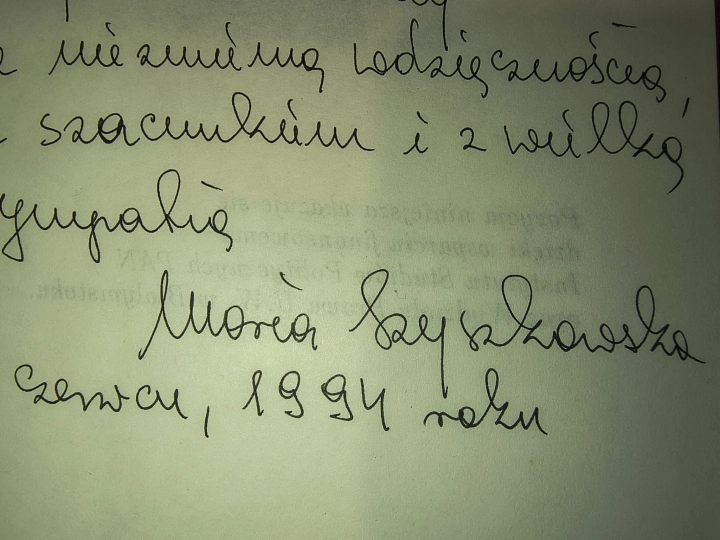 niezmierną wdzięcznością,
szacunkiem i z wielką
ympatią
Maria Szyszkowska
czerwcu, 1994 roku
Pozycja niniejsza ukazuje się
dzięki wsparciu finansowemu
Instytutu Studiów Politycznych PAN